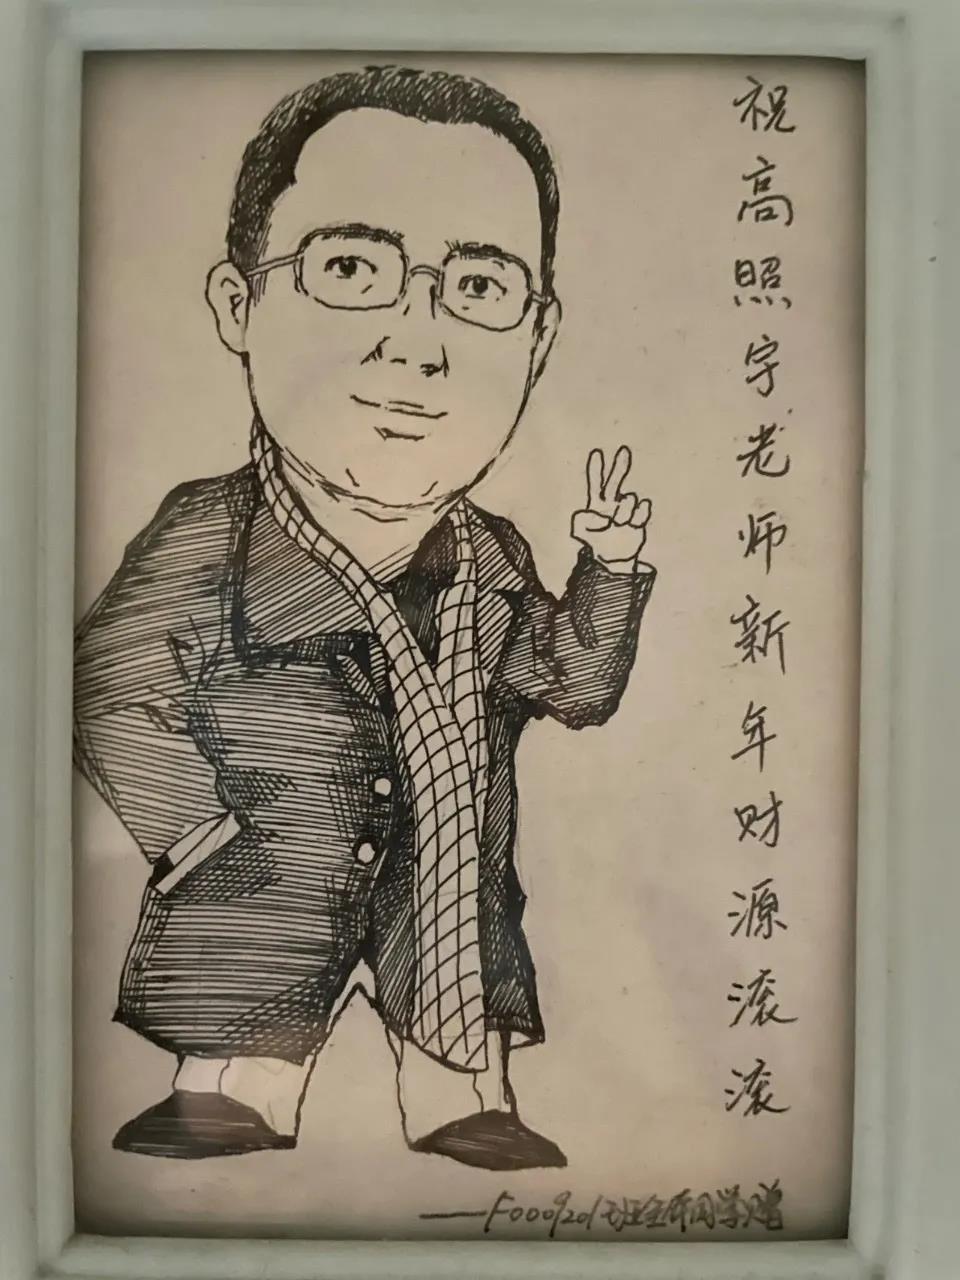 祝高照宇老师新年财源滚滚
——F0009201班全体同学赠